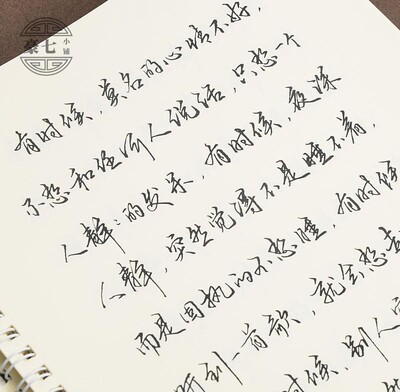 秦七
小铺
有时候,莫名的心情不好,
不想和任何人说话,只想一个
人静静的发呆,有时候,夜深
人静,突然觉得不是睡不着,
而是固执的不想睡,有时候
听到一首歌,就会想
时候,别人